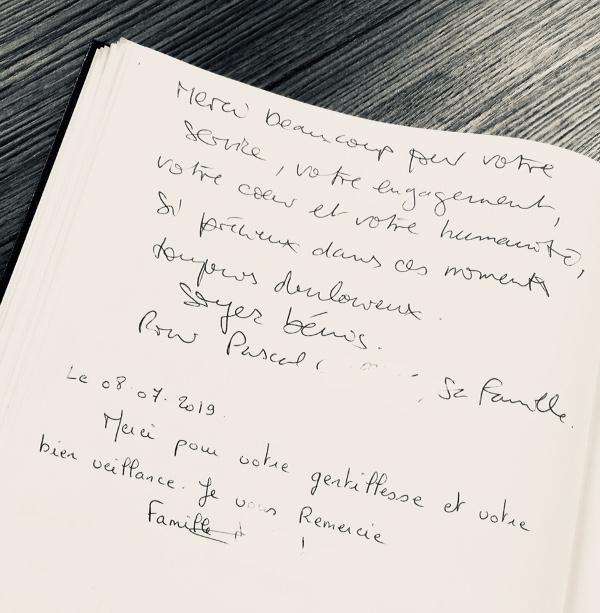 Merci beaucoup pour votre
service, votre engagement,
votre cœur et votre humanité,
si précieux dans ces moments
toujours douloureux.
Soyez bénis.
Pour Pascal sa famille.
Le 08.07.2019.
Merci pour votre gentillesse et votre
bien veillance. Je vous Remercie
Famille